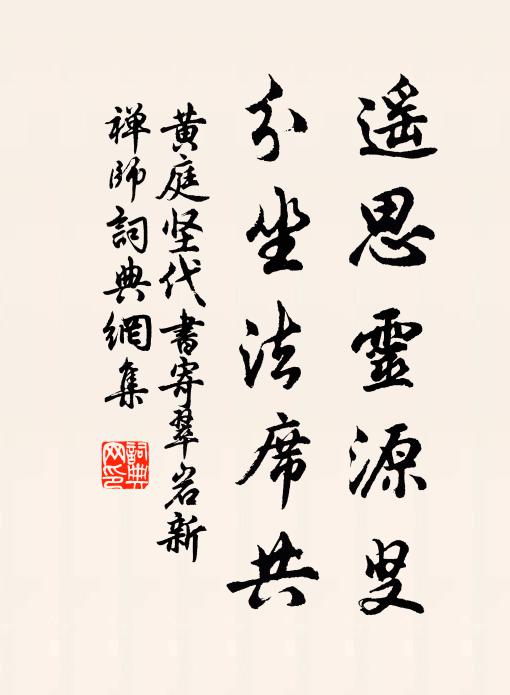 遥思靈源叟
分坐法席共
黄庭坚代書寄翠岩新
禅師詞典網集
詞典网印